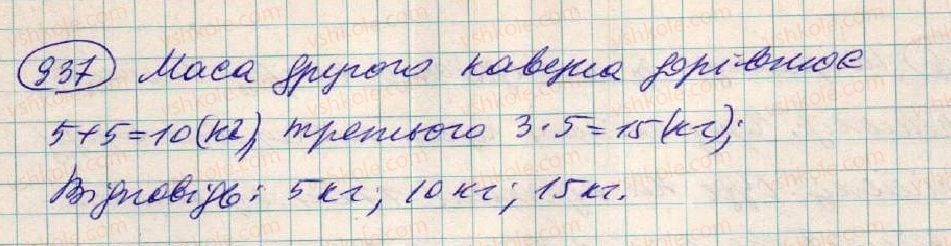 937 Маса другого кавуна дорівнює
5+5=10(кг), третього 3·5=15(кг);
Відповідь: 5кг; 10кг; 15кг.